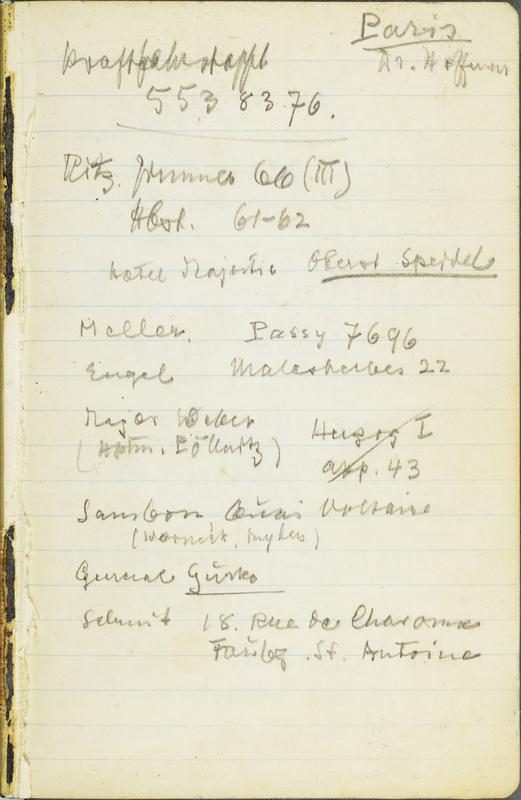 Paris
Dr. Hoffmann
Kraftfahrstaffel
553 83 76.
Ritz. Zimmer 66 (III)
Abst. 61-62
Hotel Majestic Oberst Speidel
Meller. Passy 7696
Engel Malesherbes 22
Major Weber Herzog I
(Hptm. Pöllnitz) app. 43
Sambon Quai Voltaire
General Gurko
Schmit 18. Rue de Charonne
Faubg. St. Antoine